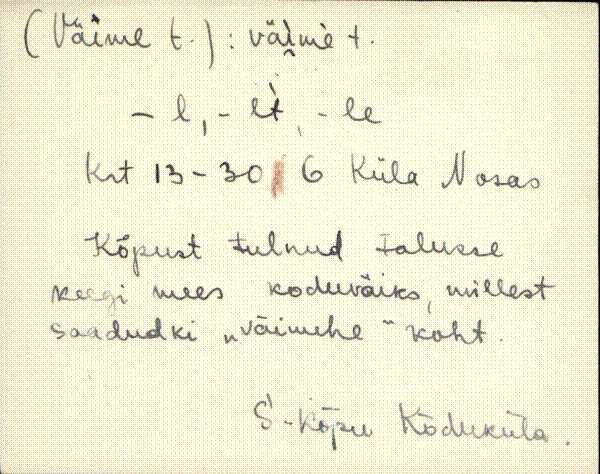 (Väime t.) : väime t.
- l, - lt, - le
Krt 13-30 6 Küla Nosas
Kõpust tulnud talusse
keegi mees koduväiks, millest
saadudki „väimehe" koht.
S-Kõpu Kõduküla.